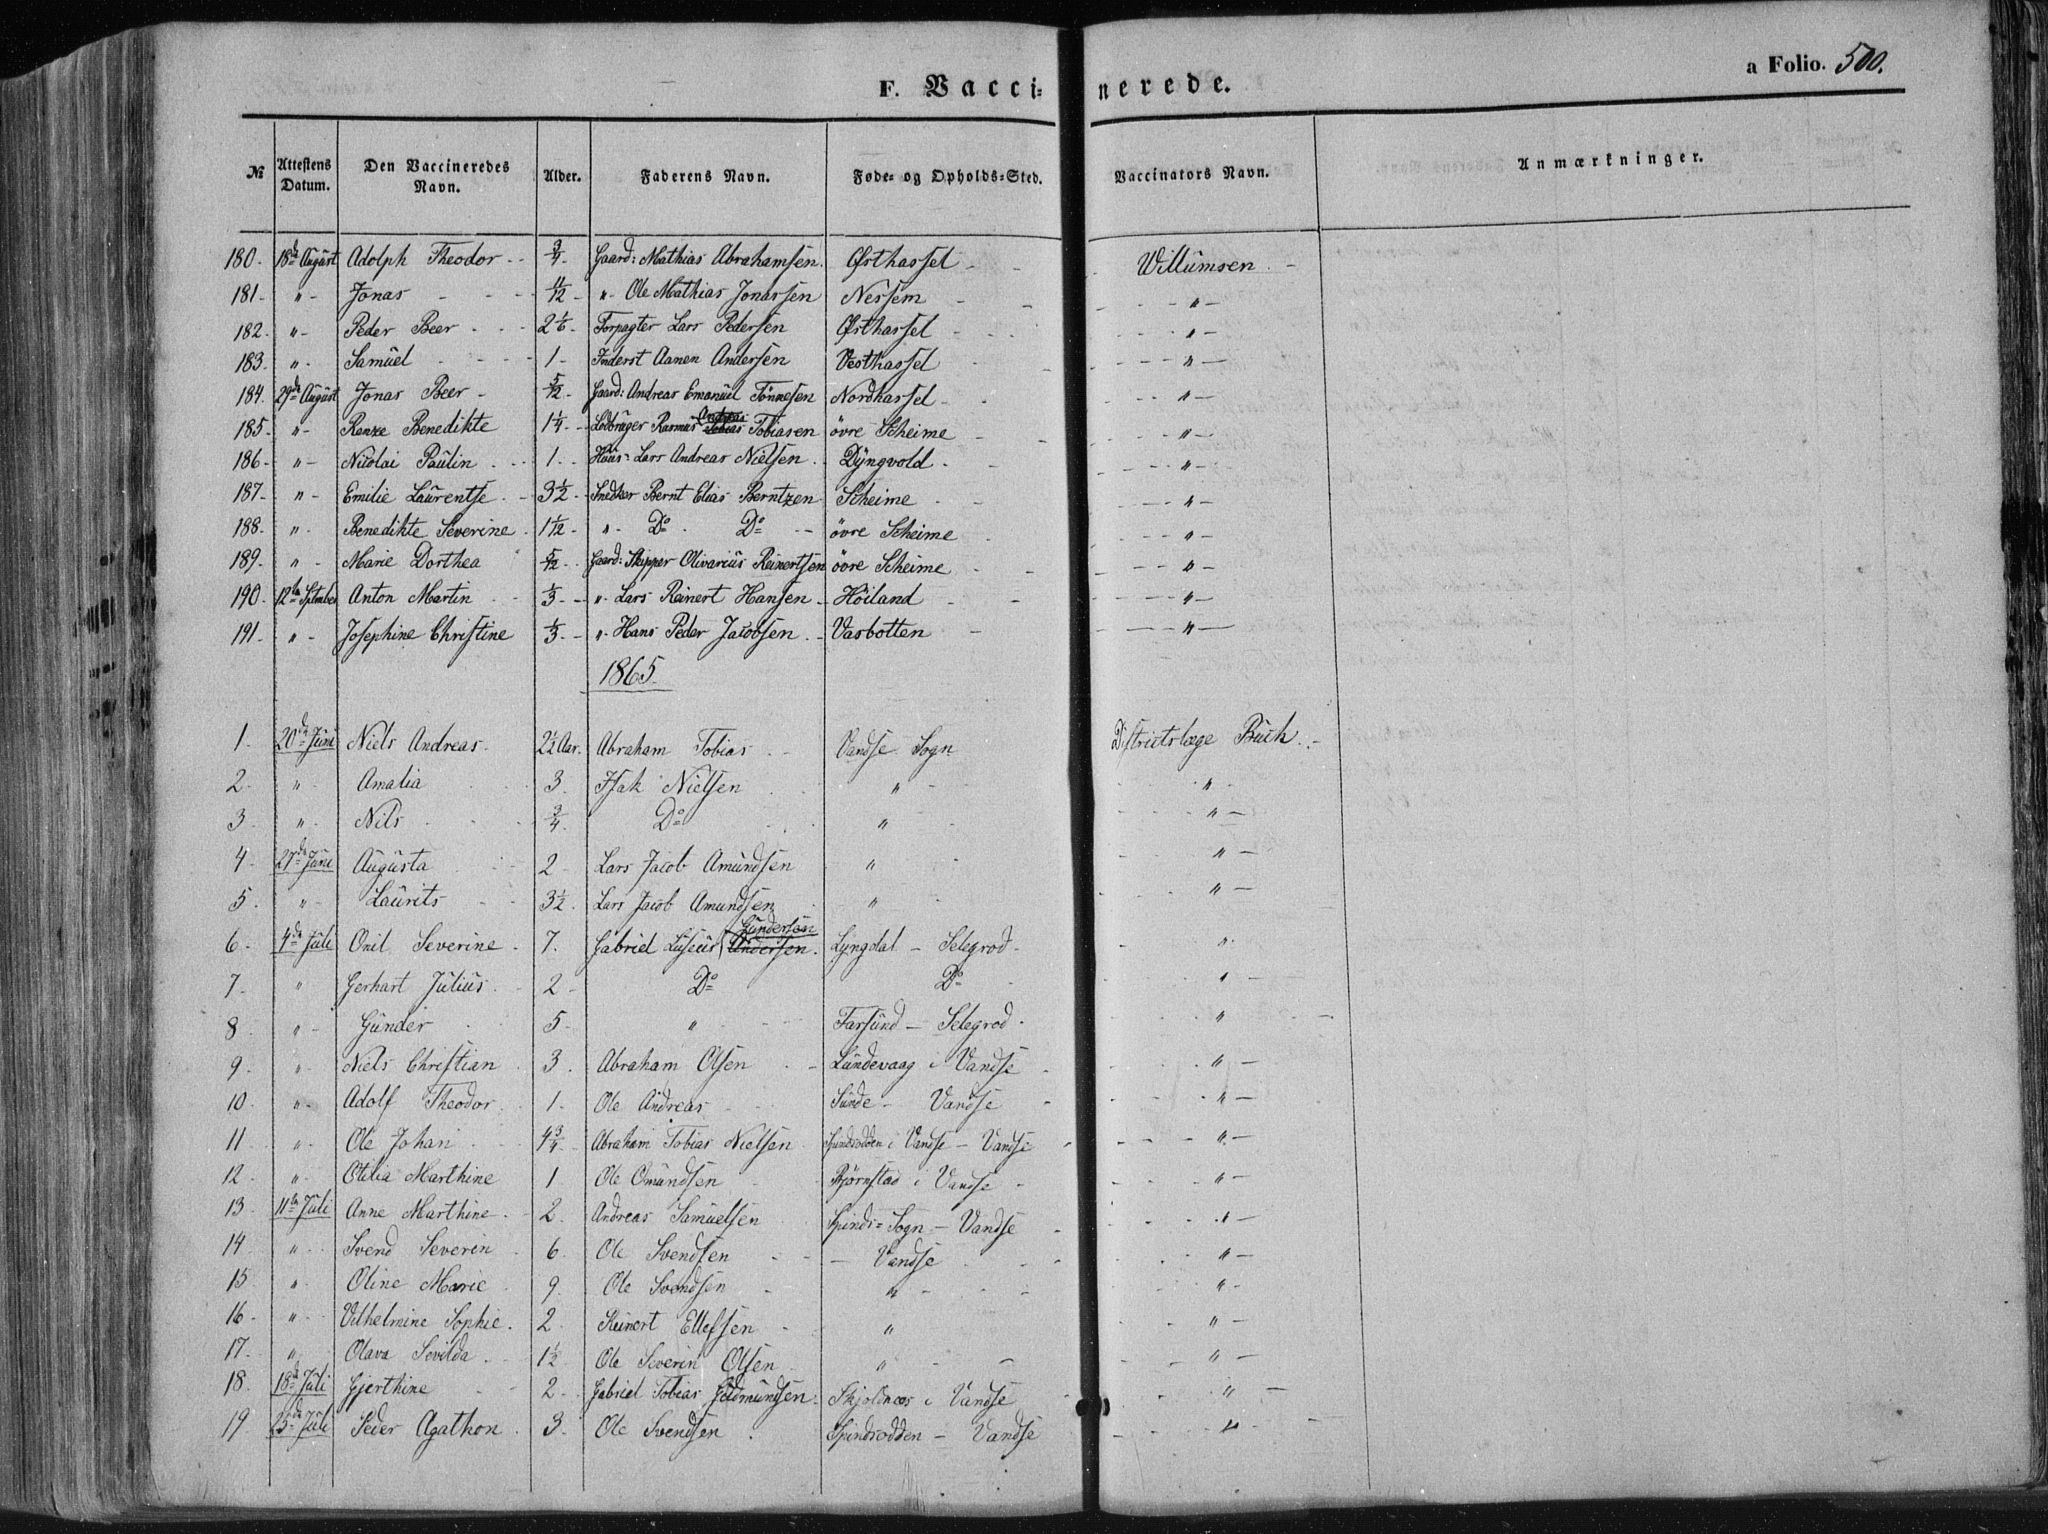 a Folio. 500.
F. Vaccinerede.
№ | Attestens Datum. | Den Vaccineredes Navn. | Alder. | Faderens Navn. | Føde- og Opholds-Sted. | Vaccinators Navn. | Anmærkninger.
180. 18de August Adolph Theodor 3/4 Gaard: Mathias Abrahamsen. Østhassel Willumsen
181 " Jonas 11/12 " Ole Mathias Jonassen Nessem "
182. " Peder Beer 2 1/6 Forpagter Lars Pedersen Østhassel "
183. " Samuel 1 Inderst Aanen Andersen Vesthassel "
184. 29de August Jonas Beer 5/12 Gaard: Andreas Emanuel Tönnesen Nordhassel "
185. " Renze Benedikte 1 1/4 Rasmus Andreas Tobias Tobiasen övre Scheime "
186 " Nicolai Paulin 1 Lars Andreas Nielsen Dyngvold "
187. " Emilie Laurentse 3 1/2 Snedker Bernt Elias Berntzen Scheime "
188. " Benedikte Severine 1 1/2 " Do Do övre Scheime "
189. " Marie Dorthea 5/12 Gaard: Skipper Olivarius Reinertsen övre Scheime "
190. 12te September Anton Martin 1/3 " Lars Reinert Hansen Höiland "
191. " Josephine Christine 1/3 " Hans Peder Jacobsen Vasbotten "
1865.
1. 20de Juni Niels Andreas 2 1/2 Aar. Abraham Tobias Vandse Sogn Distrietslæge Buch
2 " Amalia 3. Isak Nielsen " "
3 " Nils 3/4 Do " "
4. 27de Juni Augusta 2 Lars Jacob Amundsen " "
5. " Laurits 3 1/2 Lars Jacob Amundsen " "
6. 4de Juli Onil Severine 7. Gabriel Gundersen Andersen. Lyngdal - Selegrod "
7. " Gerhart Julius 2 Do Do "
8 " Gunder 5. " Farsund - Selegrod "
9. " Niels Christian 3. Abraham Olsen Lundevaag i Vandse "
10. " Adolf Theodor 1. Ole Andreas Sunde - Vandse "
11 " Ole Johan 4 3/4 Abraham Tobias Nielsen Spindsodden i Vandse - Vandse "
12. " Otilia Marthine 1 Ole Omundsen Björnstad i Vandse "
13. 11te Juli Anne Marthine 2 Andreas Samuelsen Spinds-Sogn - Vandse "
14. " Svend Severin 6. Ole Svendsen - Vandse "
15. " Oline Marie 9. Ole Svendsen " "
16. " Vilhelmine Sophie. 2. Reinert Ellefsen " "
17. " Olava Sevilda 1 1/2 Ole Severin Olsen " "
18. 18de Juli Gjerthine 2 Gabriel Tobias Guldmundsen Skjoldnæs i Vandse "
19. 25de Juli Peder Agathon 3. Ole Svendsen Spindsodden - Vandse "